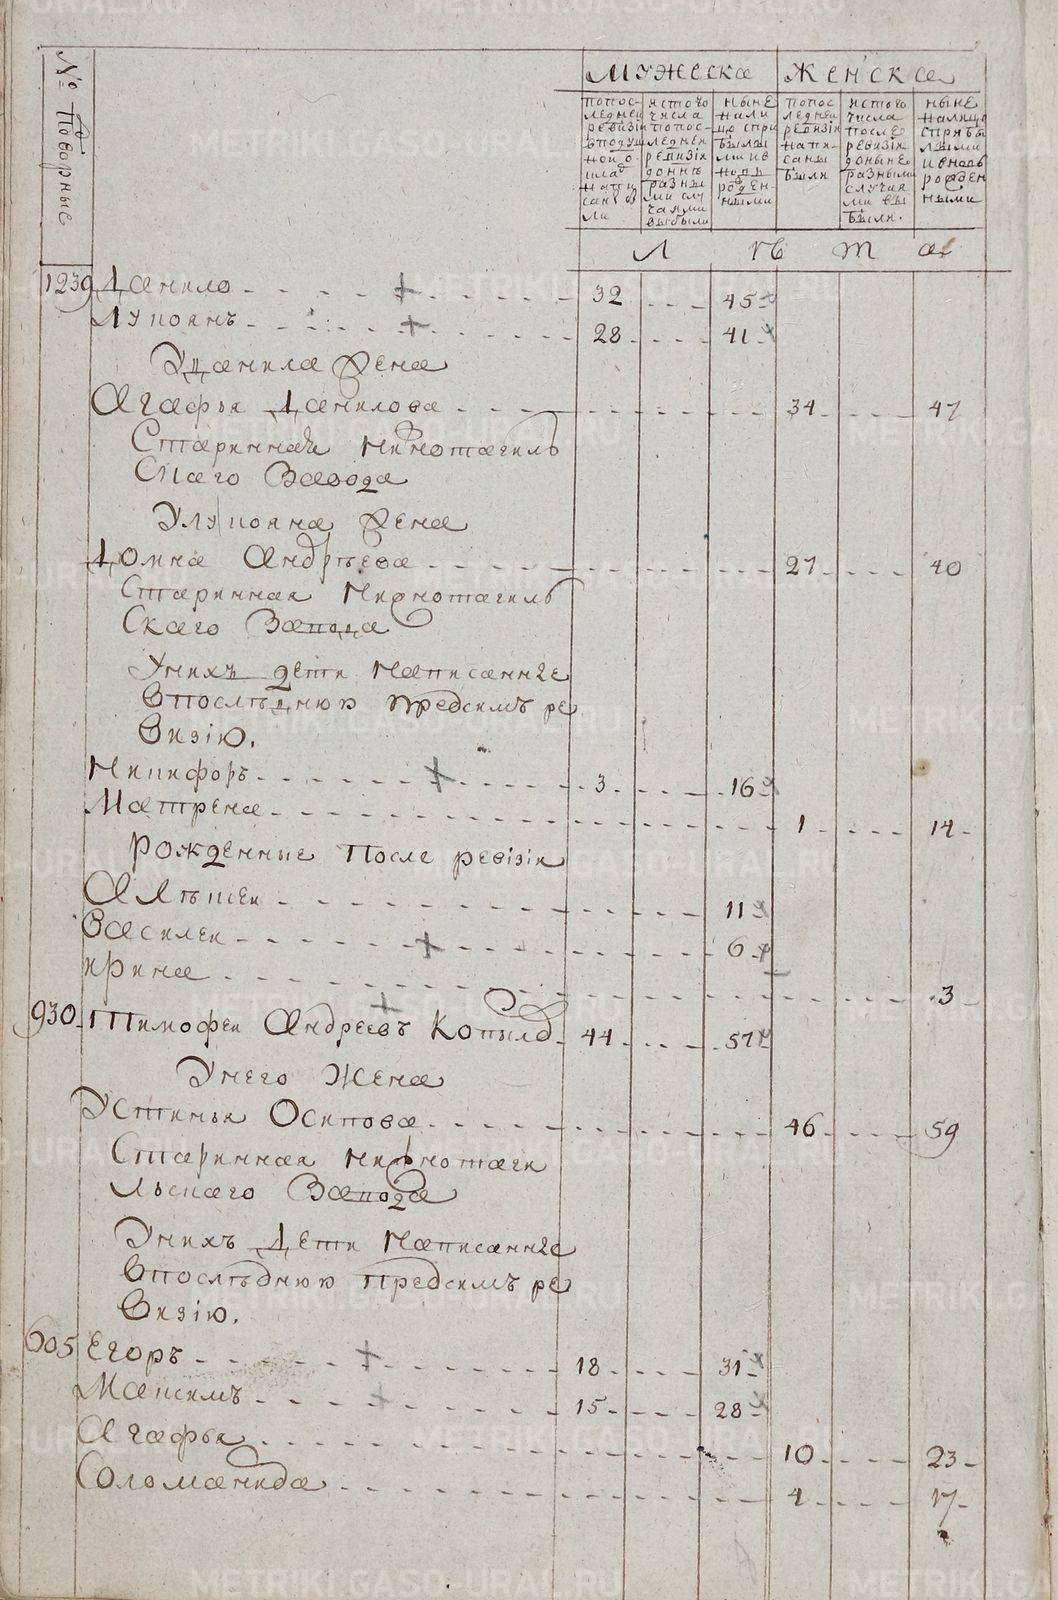 № Подворные
Мужеска
Женска
попос-
ледней
ревизіи
вподуш
ной о
клад
напи
саны бы
ли
изтого
числа
попос-
ледней
ревизіи
доннѣ
разны
ми слу
чаями
выбыли
ныне
нали
цо спри
былы
ми и в
новь
рожден-
ными
попос
ледней
ревизіи
напи-
саны
были
изтого
числа
после
ревизіи
доныне
разными
случая
ми вы
были.
ныне
налицо
сприбы
лыми
и вновь
рожден
ными
Лѣта
1239 Данило 32 45
Лукоянъ 28 41
Уданила жена
Агафья Данилова 34 47
Старинная Нижнотагиль
Скаго Завода
Улукояна жена
Домна Андрѣева 27 40
Старинная Нижнотагиль
Скаго Завода
Унихъ дети Написанные
Впослѣднюю предсимъ ре
Визію.
Никифоръ 3 16
Матрена 1 14
Рожденные После ревізіи
Алѣксеи 11
Василеи 6
Ирина 3
930 Тимофеи Андреевъ Копылов 44 57
Унего Жена
Устинья Осипова 46 59
Старинная нижнотаги
льскаго Завода
Унихъ Дети Написанные
Впослѣднюю предсимъ ре
Визію.
605 Егоръ 18 31
Максимъ 15 28
Агафья 10 23
Соломанида 4 17
METRIKI.GASO-URAL.RU